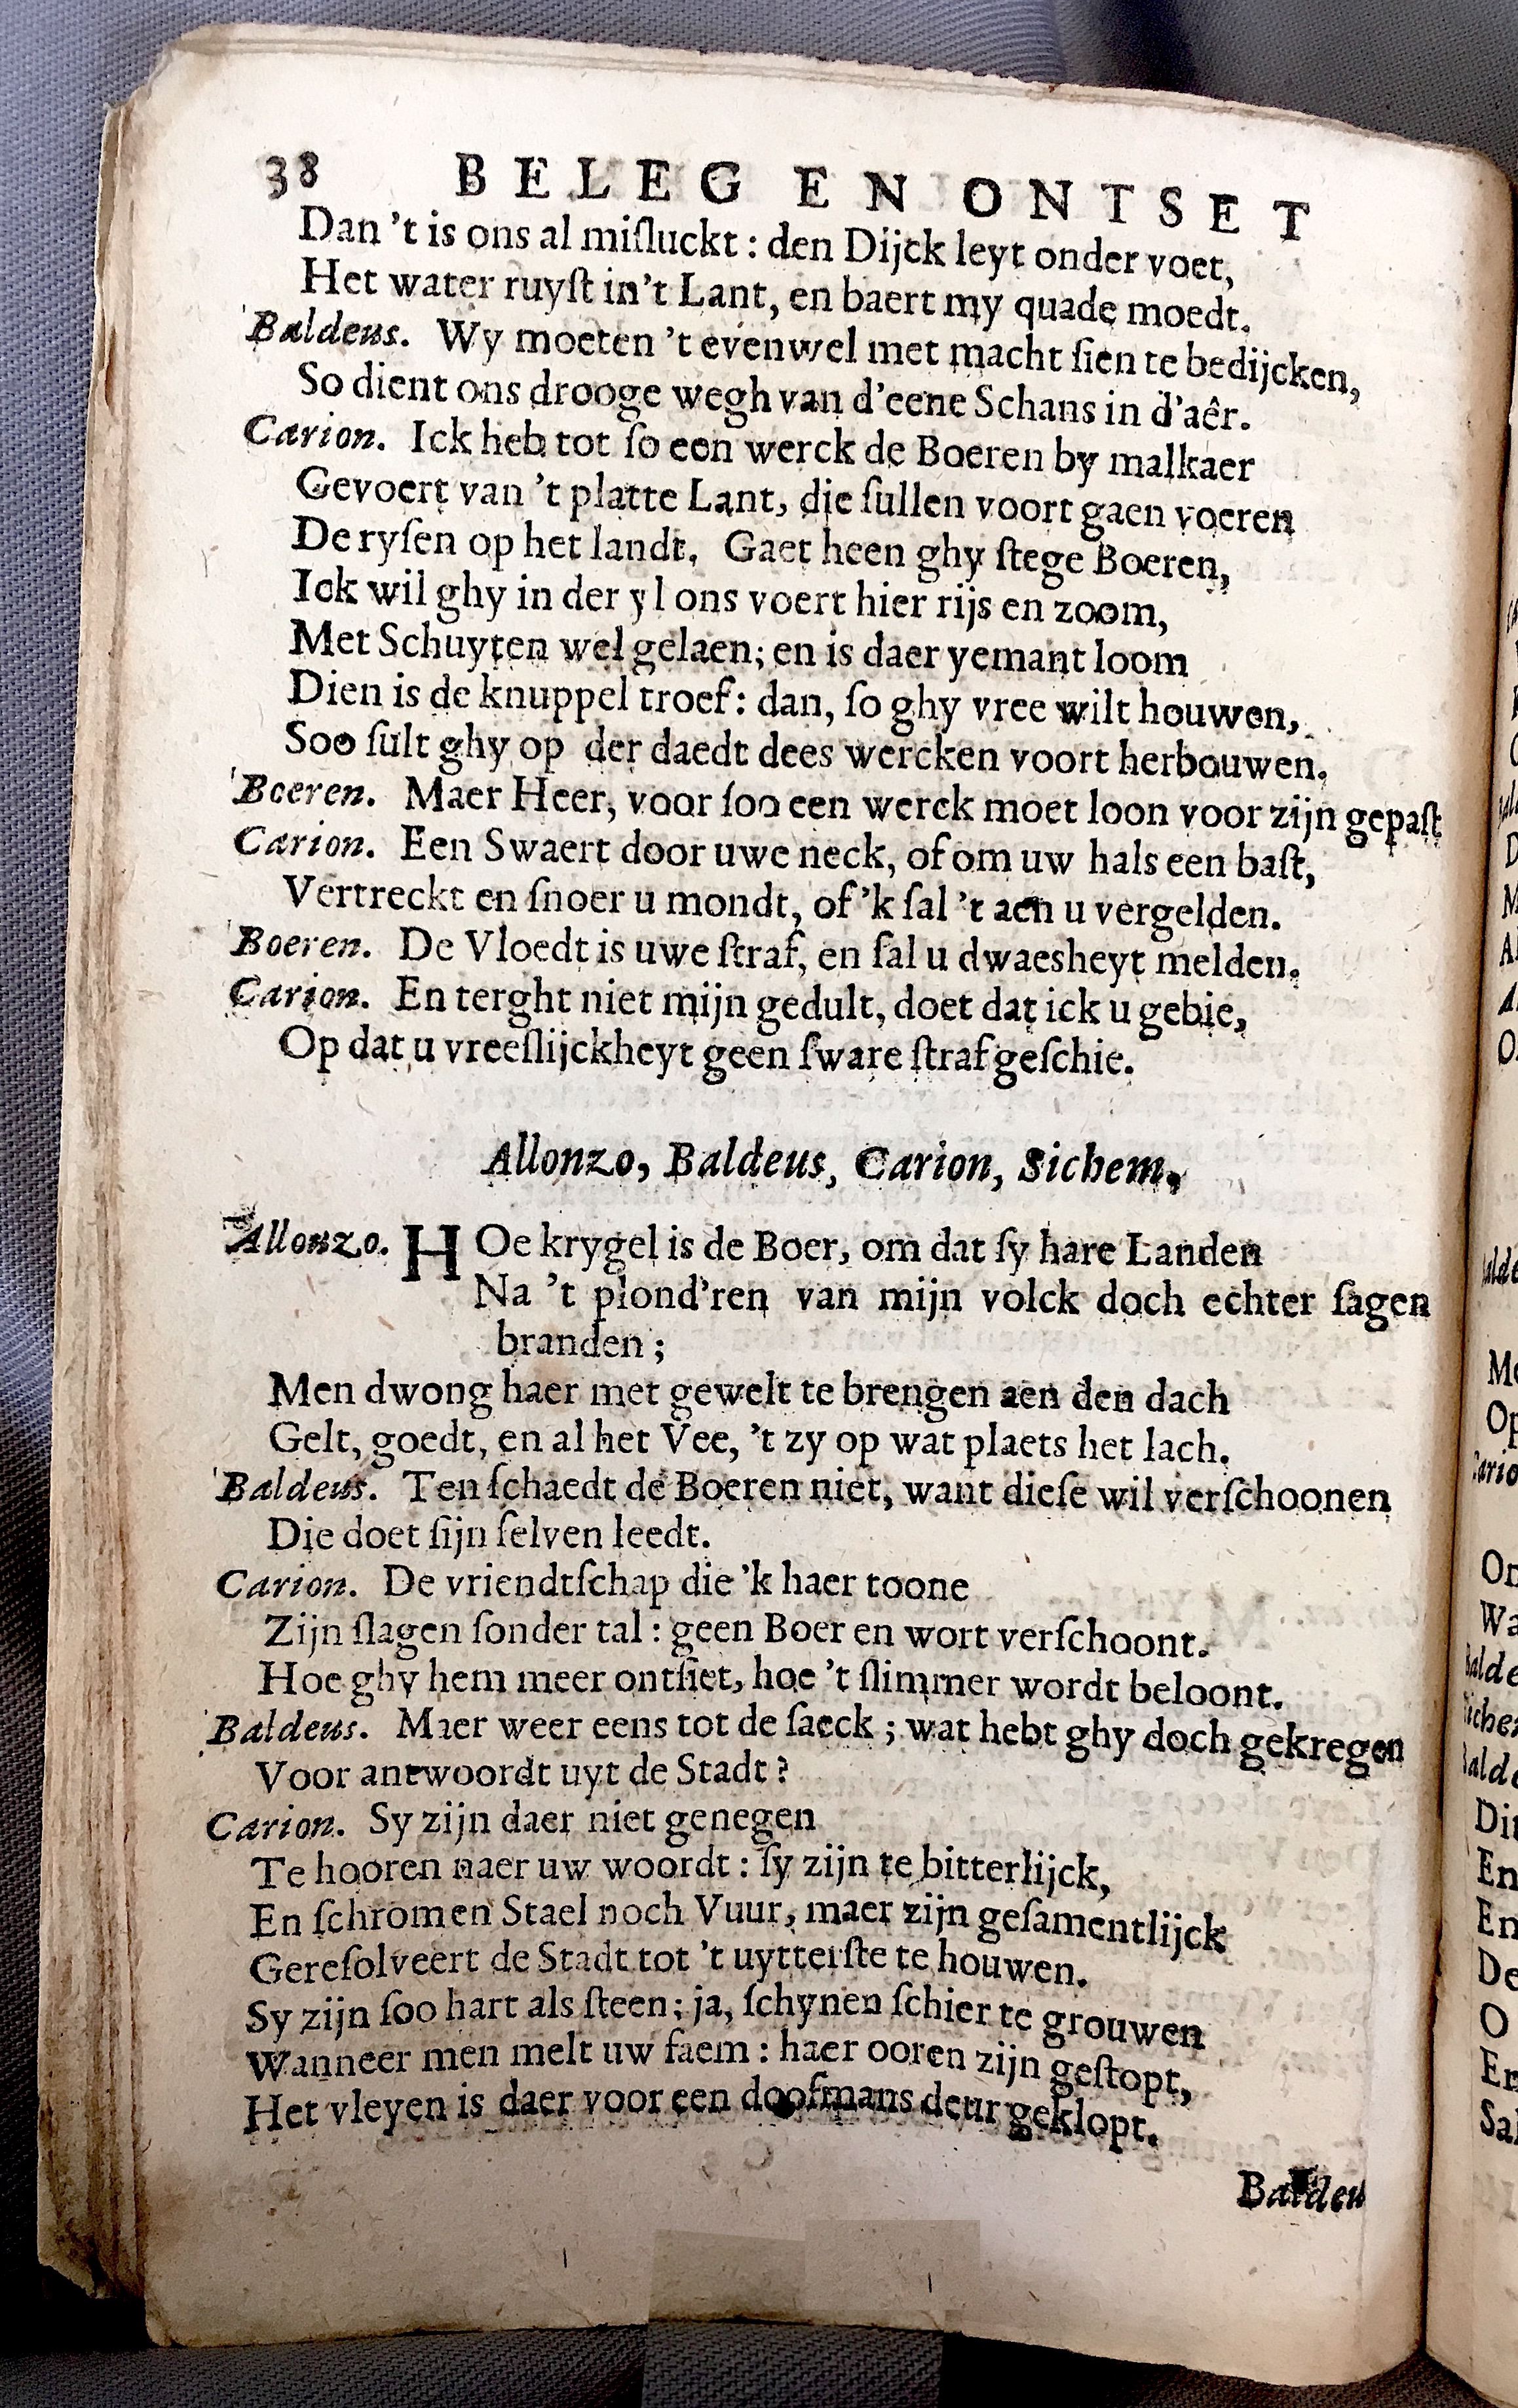 38 BELEG EN ONTSET
Dan 't is ons al miſluckt : den Dijck leyt onder voet,
Het water ruyſt in't Lant, en baert my quade moedt.
Baldeus. Wy moeten 't evenwel met macht ſien te bedijcken,
So dient ons drooge wegh van d'eene Schans in d'aêr.
Carion. Ick heb tot ſo een werck de Boeren by malkaer
Gevoert van 't platte Lant, die ſullen voort gaen voeren
De ryſen op het landt. Gaet heen ghy ſtege Boeren,
Ick wil ghy in der yl ons voert hier rijs en zoom,
Met Schuyten wel gelaen; en is daer yemant loom
Dien is de knuppel troef: dan, ſo ghy vree wilt houwen,
Soo ſult ghy op der daedt dees wercken voort herbouwen.
Boeren. Maer Heer, voor ſoo een werck moet loon voor zijn gepaſt
Carion. Een Swaert door uwe neck, of om uw hals een baſt,
Vertreckt en ſnoer u mondt, of 'k ſal 't aen u vergelden.
Boeren. De Vloedt is uwe ſtraf, en ſal u dwaesheyt melden.
Carion. En terght niet mijn gedult, doet dat ick u gebie,
Op dat u vreeſlijckheyt geen ſware ſtraf geſchie.
Allonzo, Baldeus, Carion, Sichem.
Allonzo. HOe krygel is de Boer, om dat ſy hare Landen
Na 't plond'ren van mijn volck doch echter ſagen
branden ;
Men dwong haer met gewelt te brengen aen den dach
Gelt, goedt, en al het Vee, 't zy op wat plaets het lach.
Baldeus. Ten ſchaedt de Boeren niet, want dieſe wil verſchoonen
Die doet ſijn ſelven leedt.
Carion. De vriendtſchap die 'k haer toone
Zijn ſlagen ſonder tal : geen Boer en wort verſchoont.
Hoe ghy hem meer ontſiet, hoe 't ſlimmer wordt beloont.
Baldeus. Maer weer eens tot de ſaeck ; wat hebt ghy doch gekregen
Voor antwoordt uyt de Stadt ?
Carion. Sy zijn daer niet genegen
Te hooren naer uw woordt : ſy zijn te bitterlijck,
En ſchromen Stael noch Vuur, maer zijn geſamentlijck
Gereſolveert de Stadt tot 't uytterſte te houwen.
Sy zijn ſoo hart als ſteen; ja, ſchynen ſchier te grouwen
Wanneer men melt uw faem : haer ooren zijn geſtopt,
Het vleyen is daer voor een doofmans deur geklopt.
Baldeu